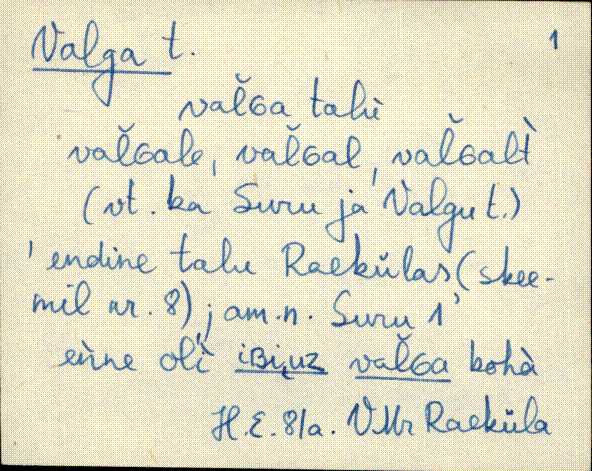 Valga t. 1
val̆ɢa talù
val̆ɢale, val̆ɢal, val̆ɢalt̀
(vt. ka Suru ja Valgu t.)
'endine talu Raekülas (skee-
mil nr. 8); am.n. Suru 1'
eǹne olì val̆ɢa kohà
H.E. 81a. VMr Raeküla